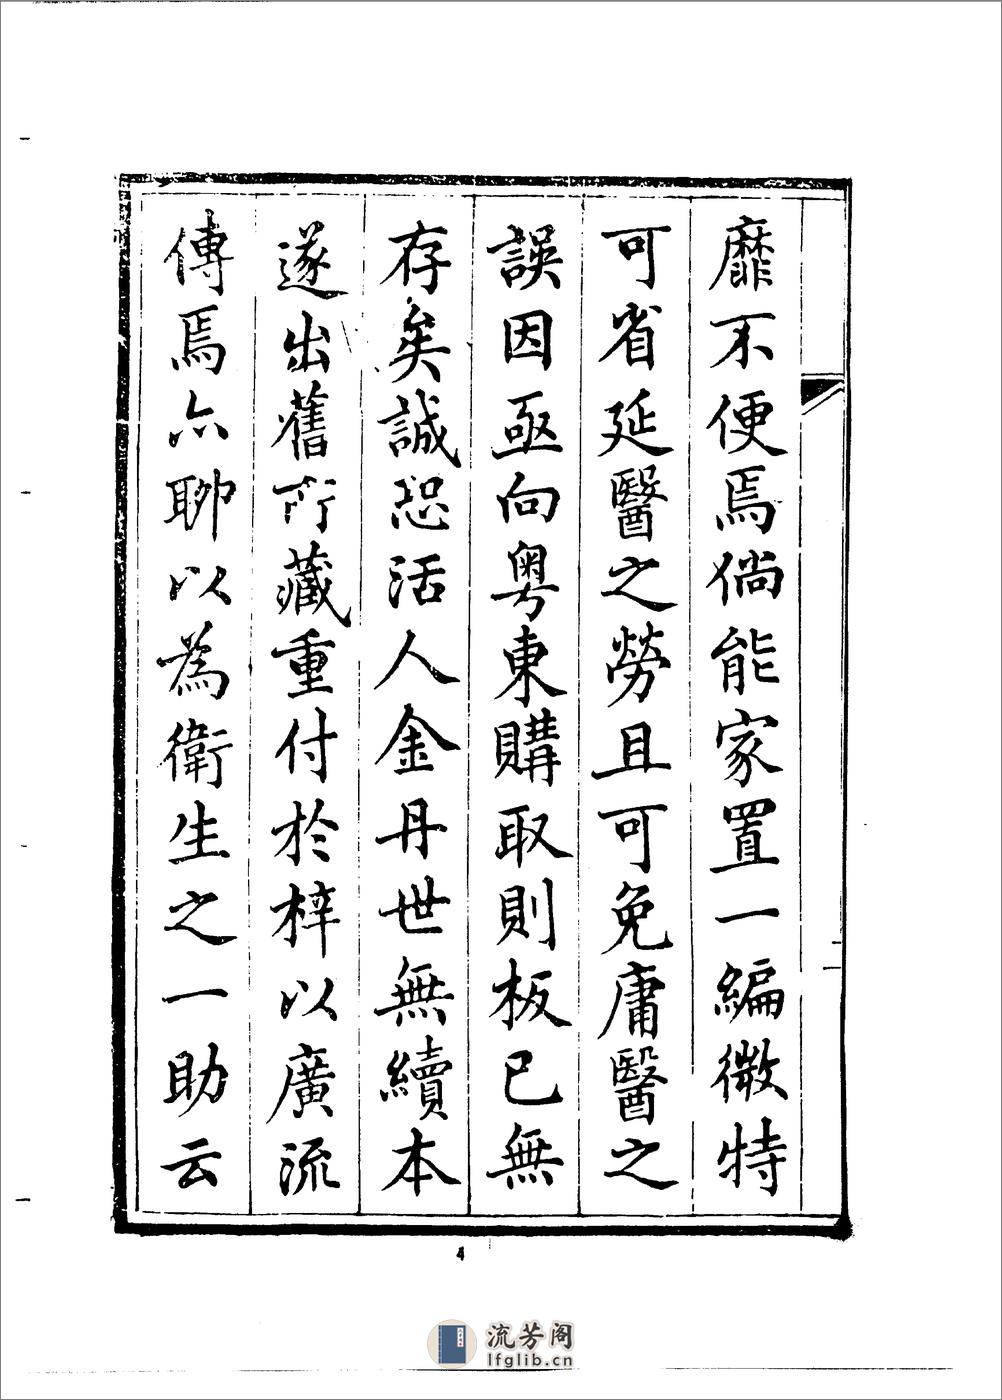 靡不便焉倘能家置一編微特
可省延醫之勞且可免庸醫之
誤因亟向粵東購取則板已無
存矣誠恐活人金丹世無續本
遂出舊所藏重付於梓以廣流
傳焉亦聊以為衛生之一助云
4
流芳阁
lfglib.cn